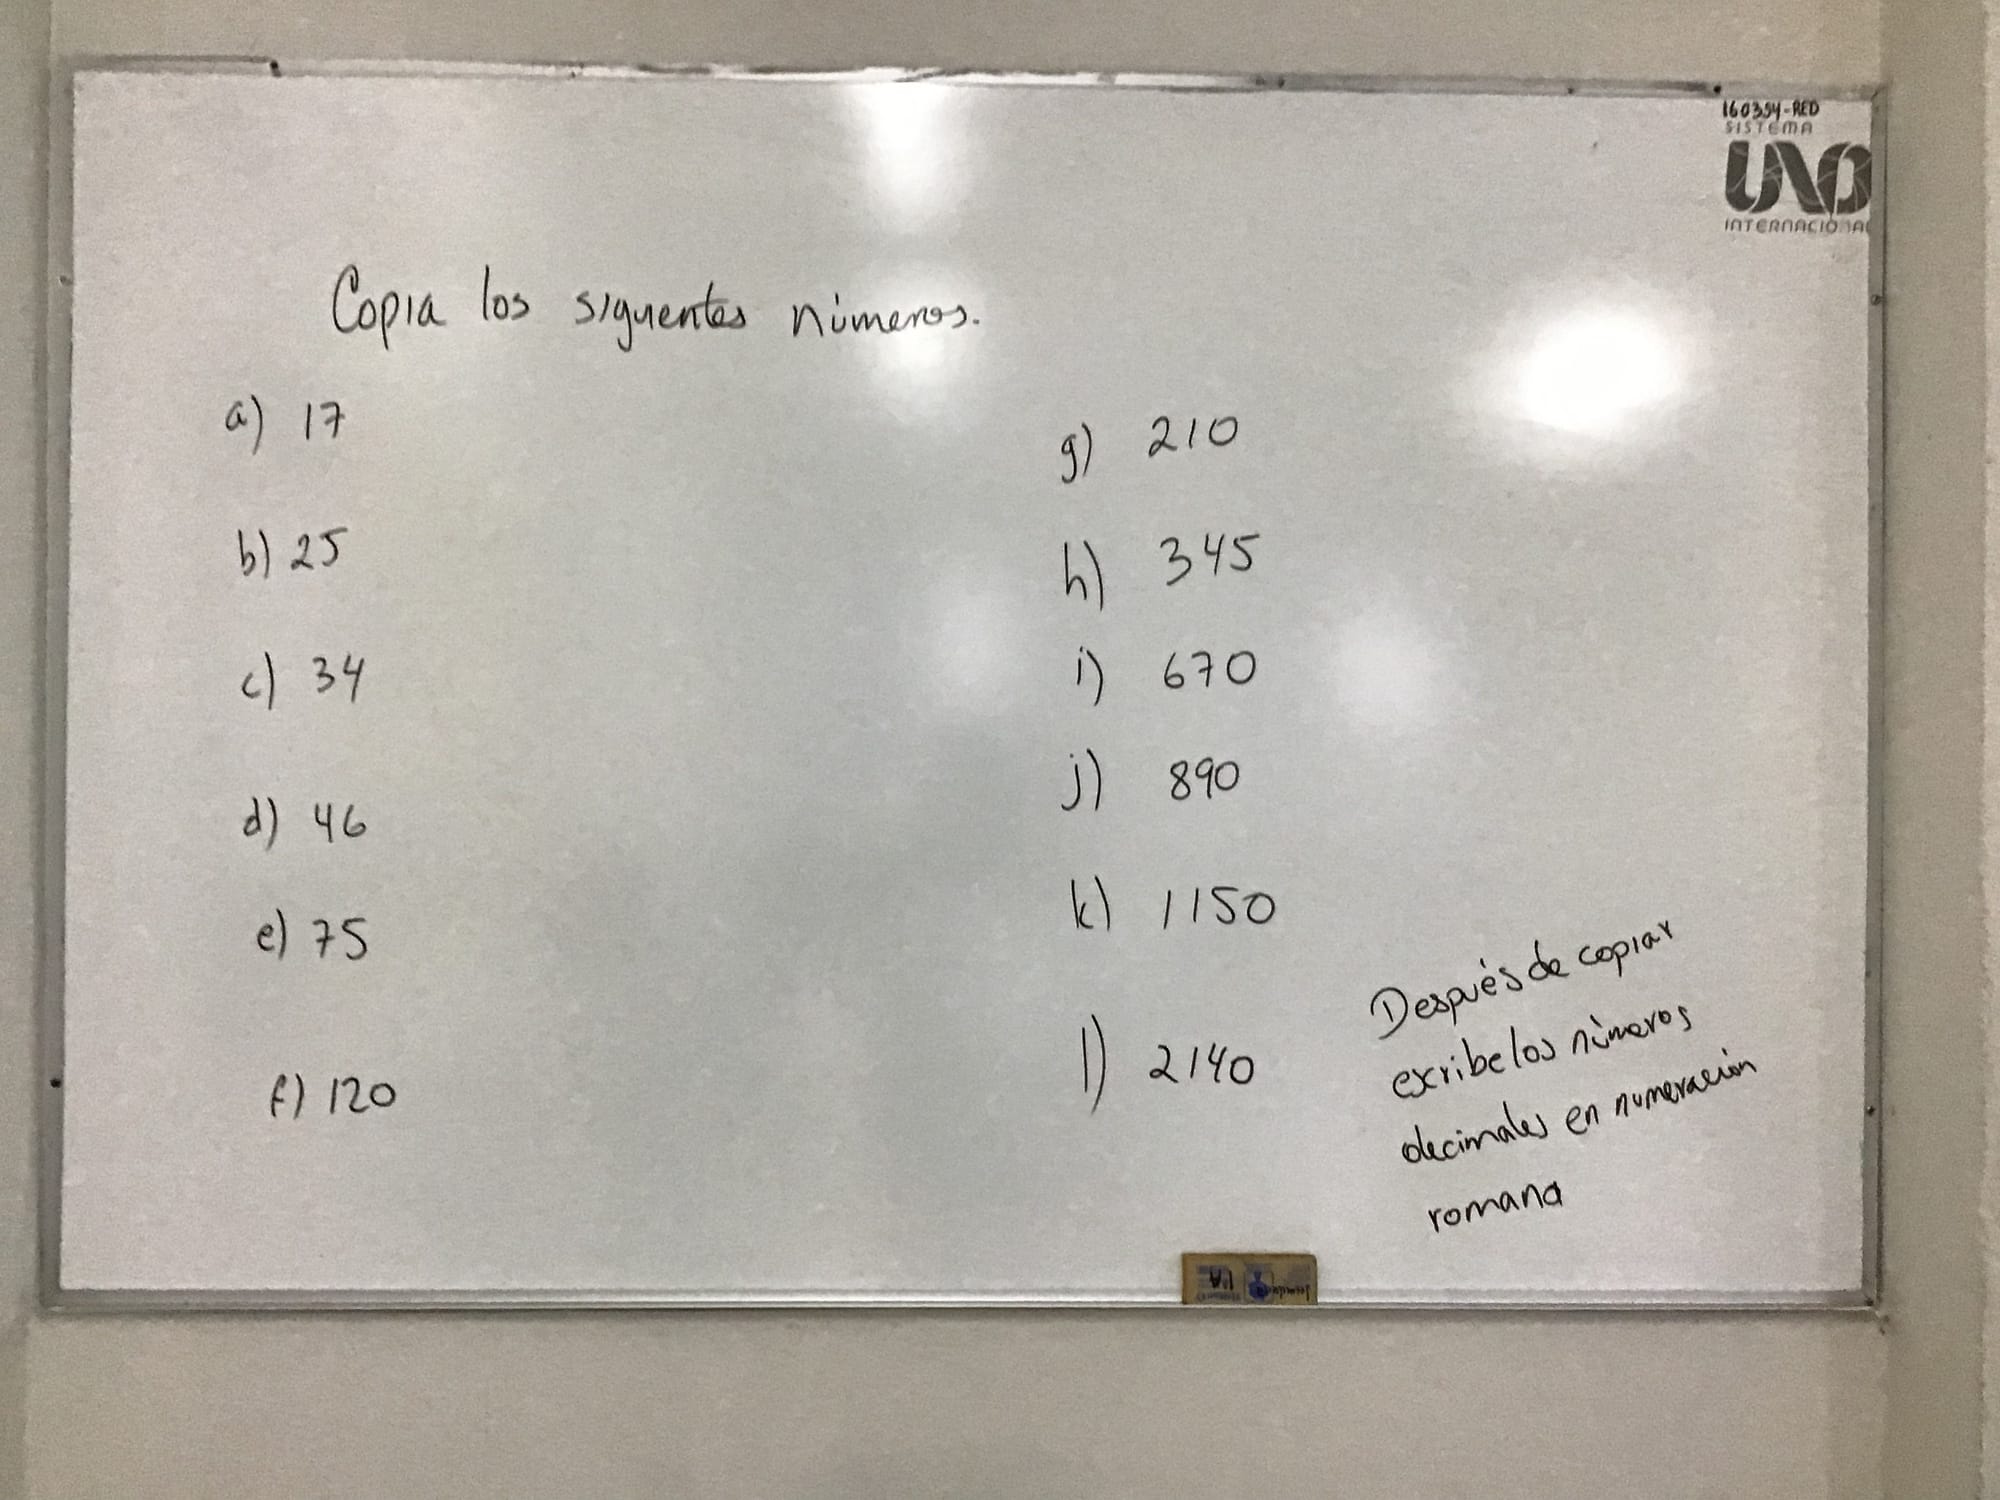 160354-RED
SISTEMA
UNO
INTERNACIONAL
Copia los siguentes números.
a) 17
b) 25
c) 34
d) 46
e) 75
f) 120
g) 210
h) 345
i) 670
j) 890
k) 1150
l) 2140
Después de copiar
escribe los números
decimales en numeración
romana